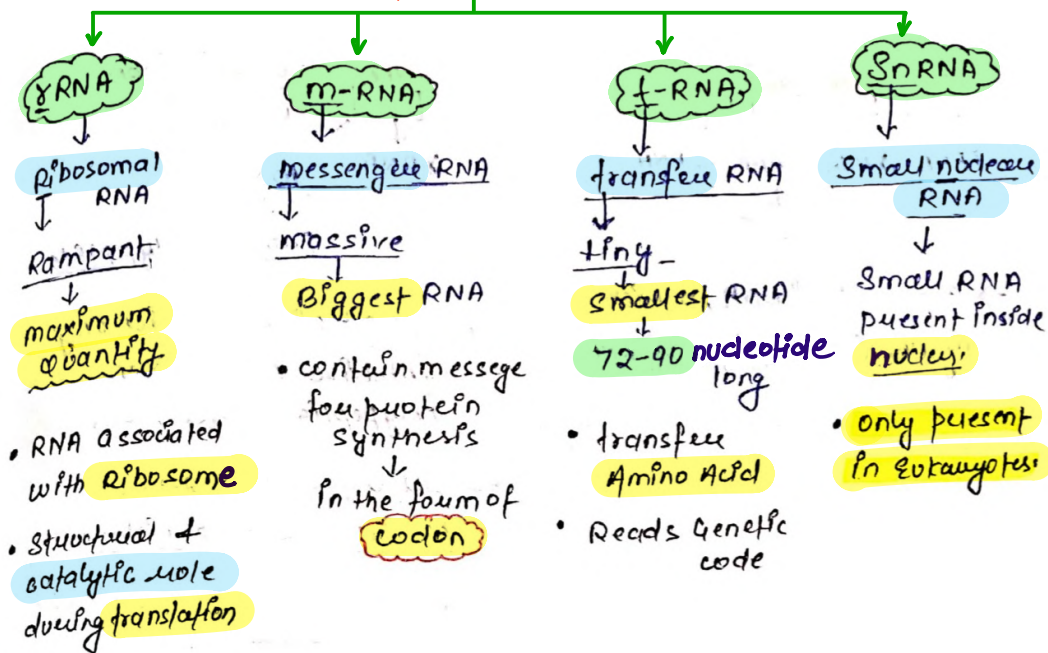 rRNA
Ribosomal
RNA
Rampant.
maximum
Quantity
• RNA associated
with Ribosome
• Structural &
catalytic role
during translation
m-RNA
messenger RNA
massive
Biggest RNA
• contain messege
for protein
synthesis
in the form of
codon
t-RNA
transfer RNA
tiny
Smallest RNA
72-90 nucleotide
long
• transfer
Amino Acid
• Reads Genetic
code
SnRNA
Small nuclear
RNA
Small RNA
present inside
• only present
in Eukaryotes.